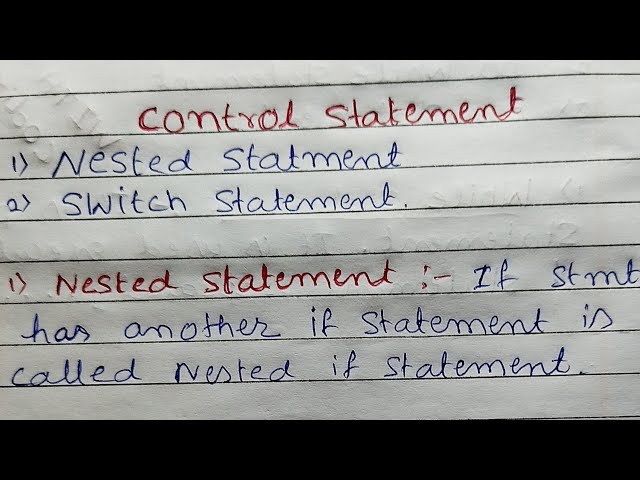 Control Statement
1) Nested Statment
2) Switch Statement.
1) Nested Statement :- If Stmt
has another if Statement is
called Nested if Statement.